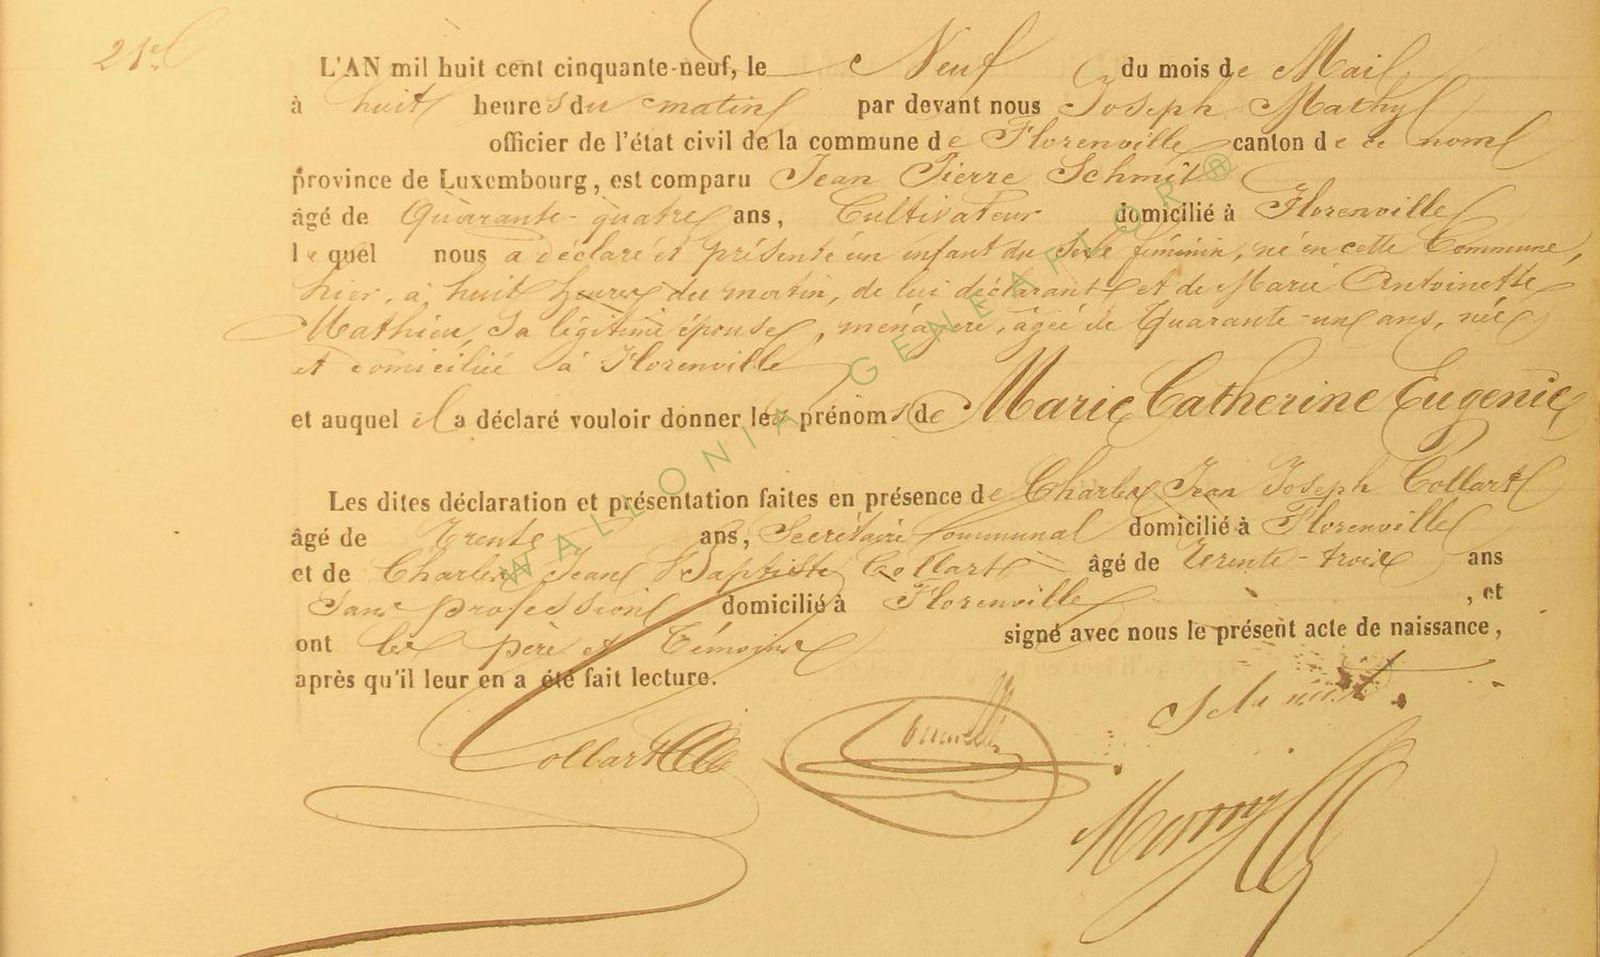 21e
L'AN mil huit cent cinquante-neuf, le Neuf du mois de Mai
à huit heures du matin par devant nous Joseph Mathy
officier de l'état civil de la commune de Florenville canton de ce nom
province de Luxembourg, est comparu Jean Pierre Schmit
âgé de Quarante-quatre ans, Cultivateur domicilié à Florenville
lequel nous a déclaré et présenté un enfant du sexe féminin, né en cette Commune,
hier, à huit heures du matin, de lui déclarant et de Marie Antoinette
Mathieu, sa légitime épouse, ménagère, âgée de Quarante-un ans, née
et domiciliée à Florenville
et auquel il a déclaré vouloir donner les prénoms de Marie Catherine Eugenie
Les dites déclaration et présentation faites en présence de Charles Jean Joseph Collart
âgé de Trente ans, Secrétaire Communal domicilié à Florenville
et de Charles Jean Baptiste Collart âgé de Trente-trois ans
Sans profession domicilié à Florenville , et
ont les père et Témoins signé avec nous le présent acte de naissance,
après qu'il leur en a été fait lecture.
Collart
WALLONIA GENEAFLOR ®